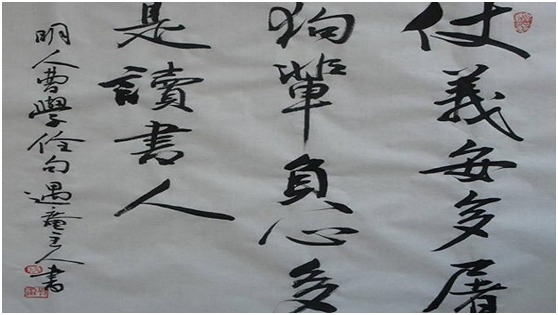 仗義每多屠
狗輩負心多
是讀書人
明人曹學佺句遇庵主人書